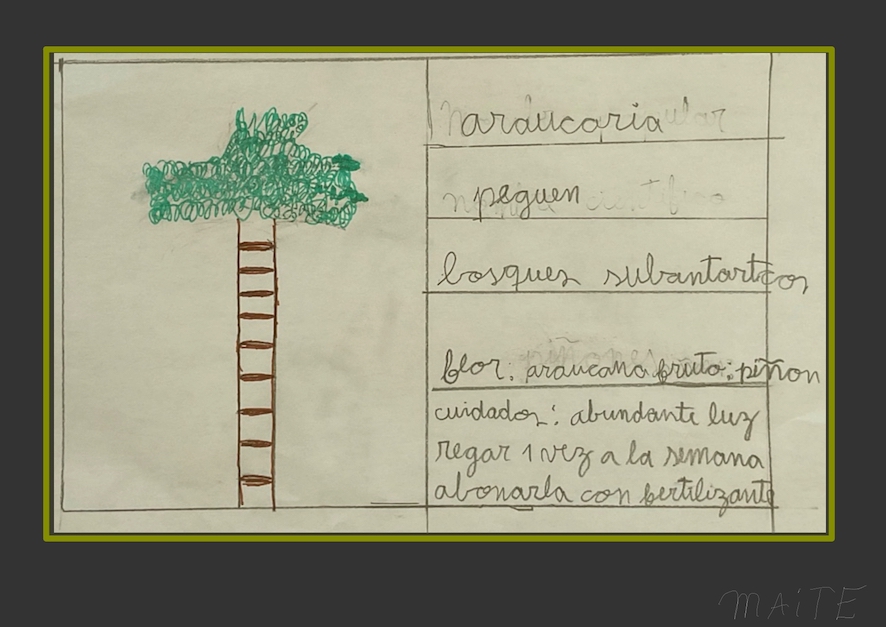 araucaria
peguen
bosques subantarticos
flor: araucana fruto: piñon
cuidados: abundante luz
regar 1 vez a la semana
abonarla con fertilizante
MAiTE